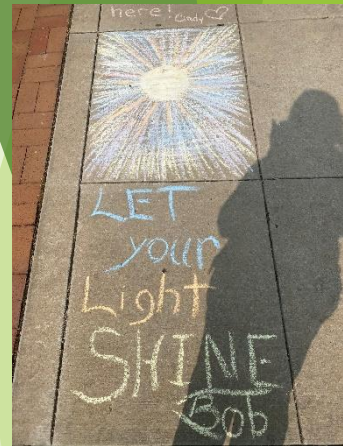 here! Cindy
LET
your
Light
SHINE
Bob